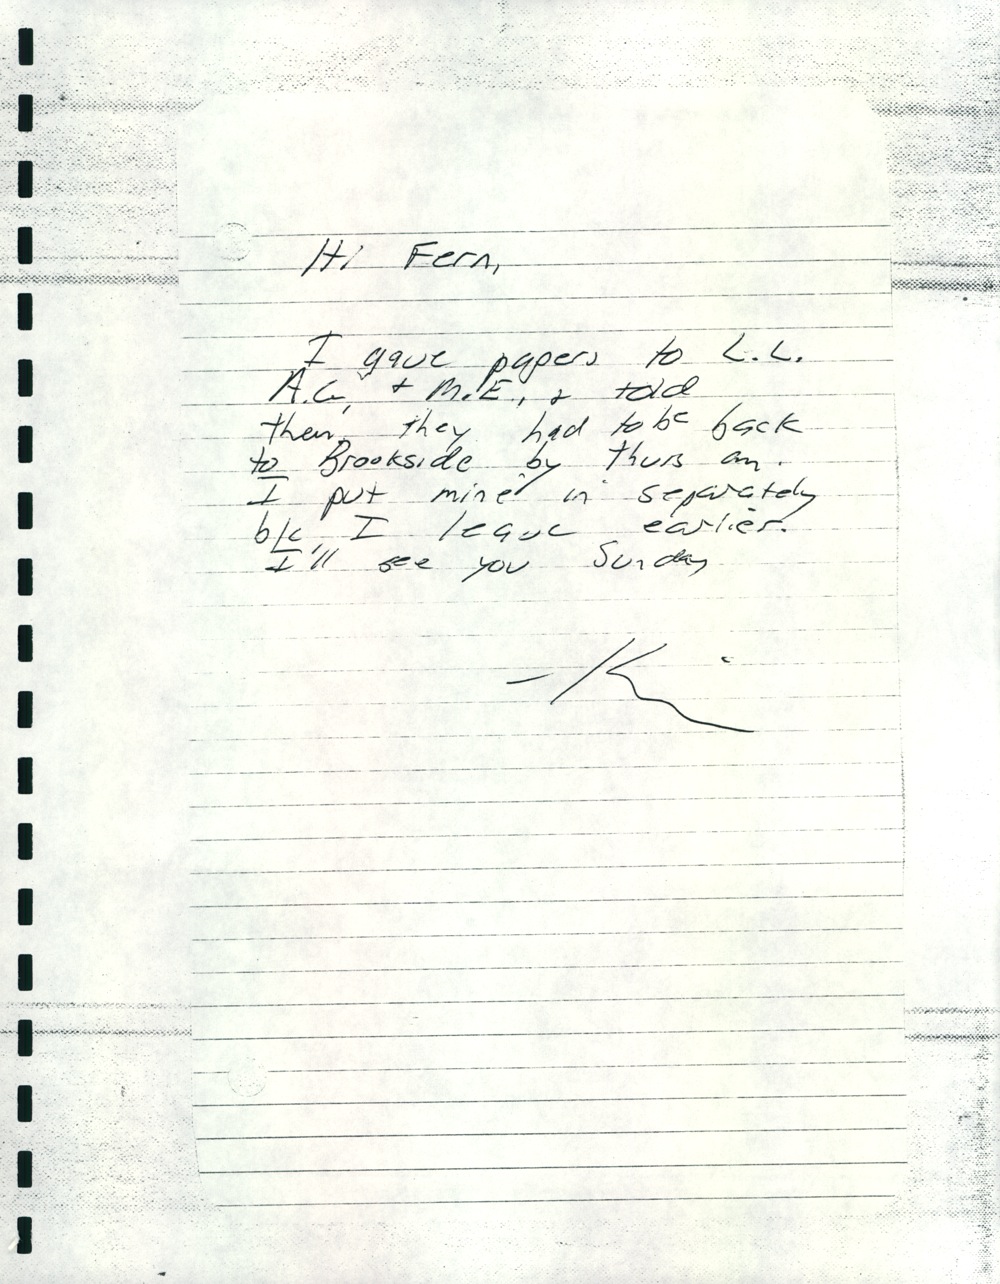 Hi Fern,
I gave papers to L.L.
A.C., + M.E., & told
them they had to be back
to Brookside by thurs am.
I put mine in separately
b/c I leave earlier.
I'll see you Sunday